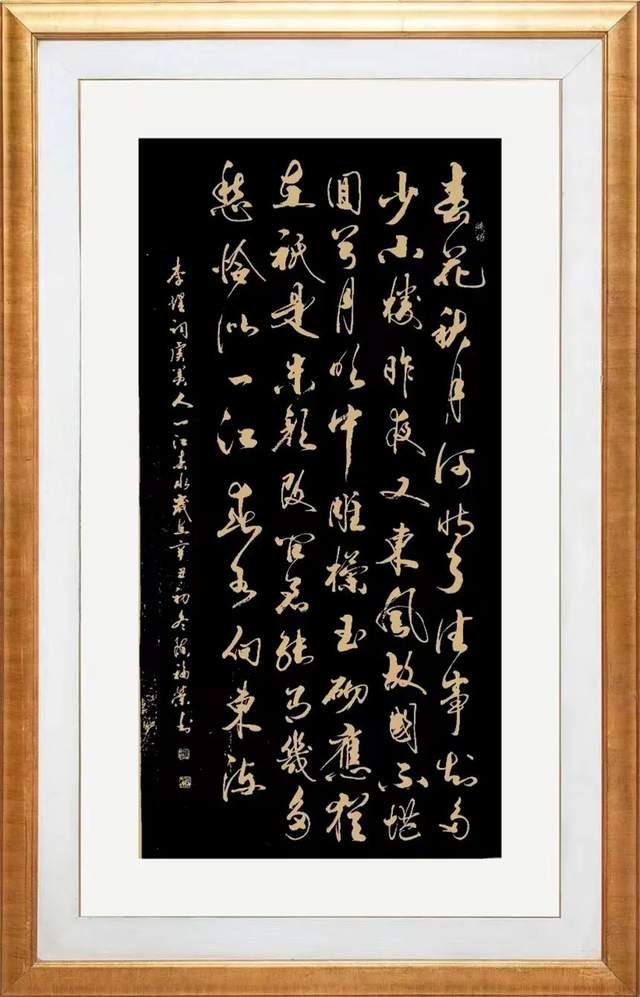 春花秋月何時了往事知多
少小樓昨夜又東風故國不堪
回首月明中雕欄玉砌應猶
在祇是朱顏改問君能有幾多
愁恰似一江春水向東流
李煜詞虞美人一江春水歲在辛丑初冬陳福榮書